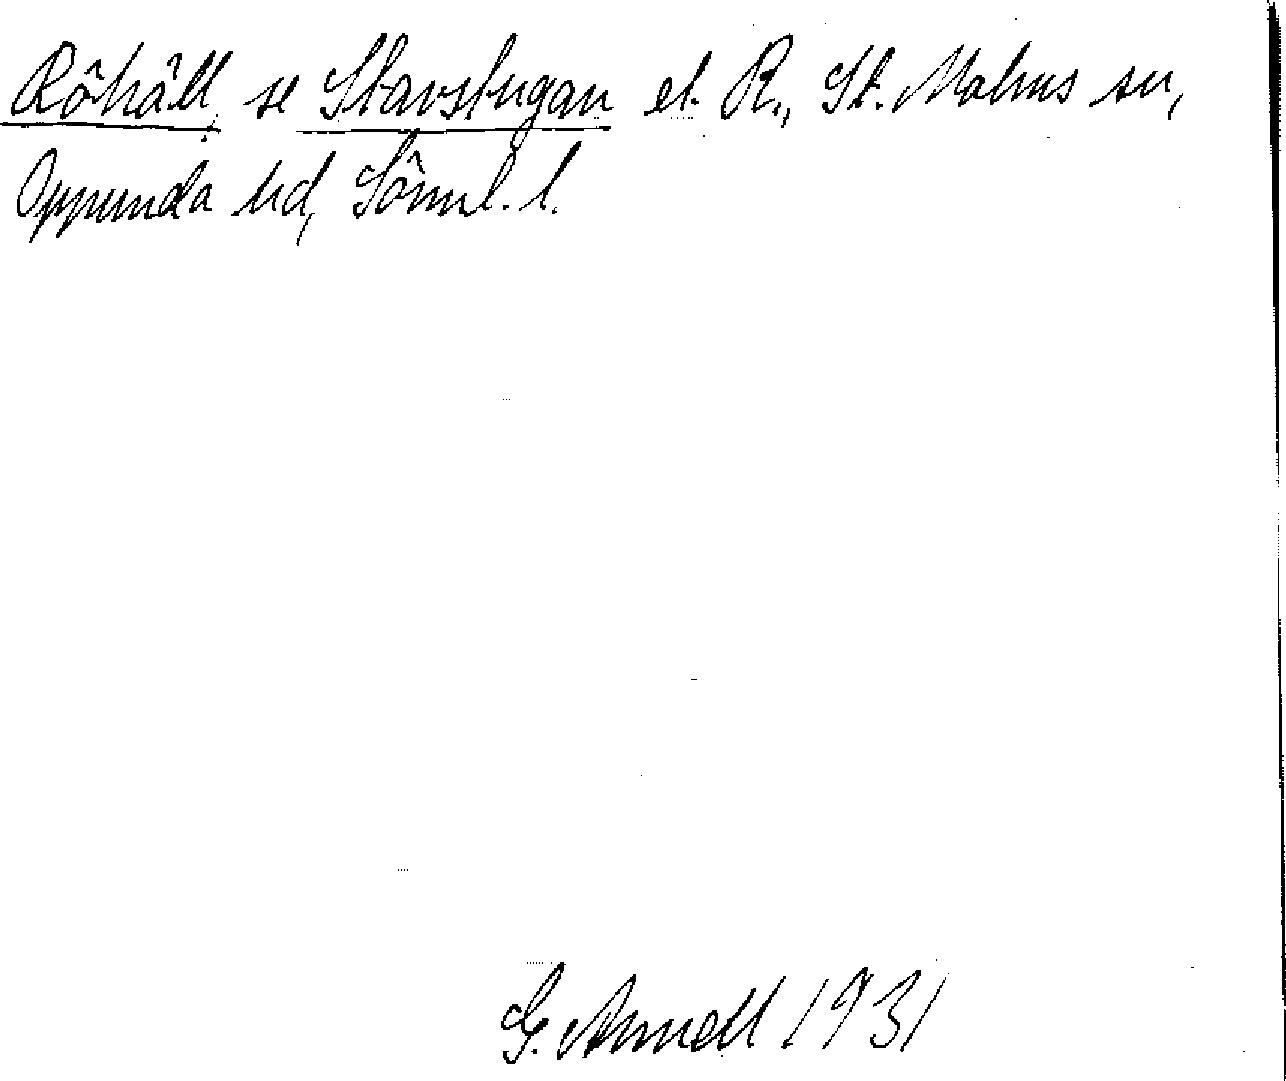 Röhäll, se Stavstugan el. R., St. Malms sn,
Oppunda hd, Sörml. l.
G. Annell 1931